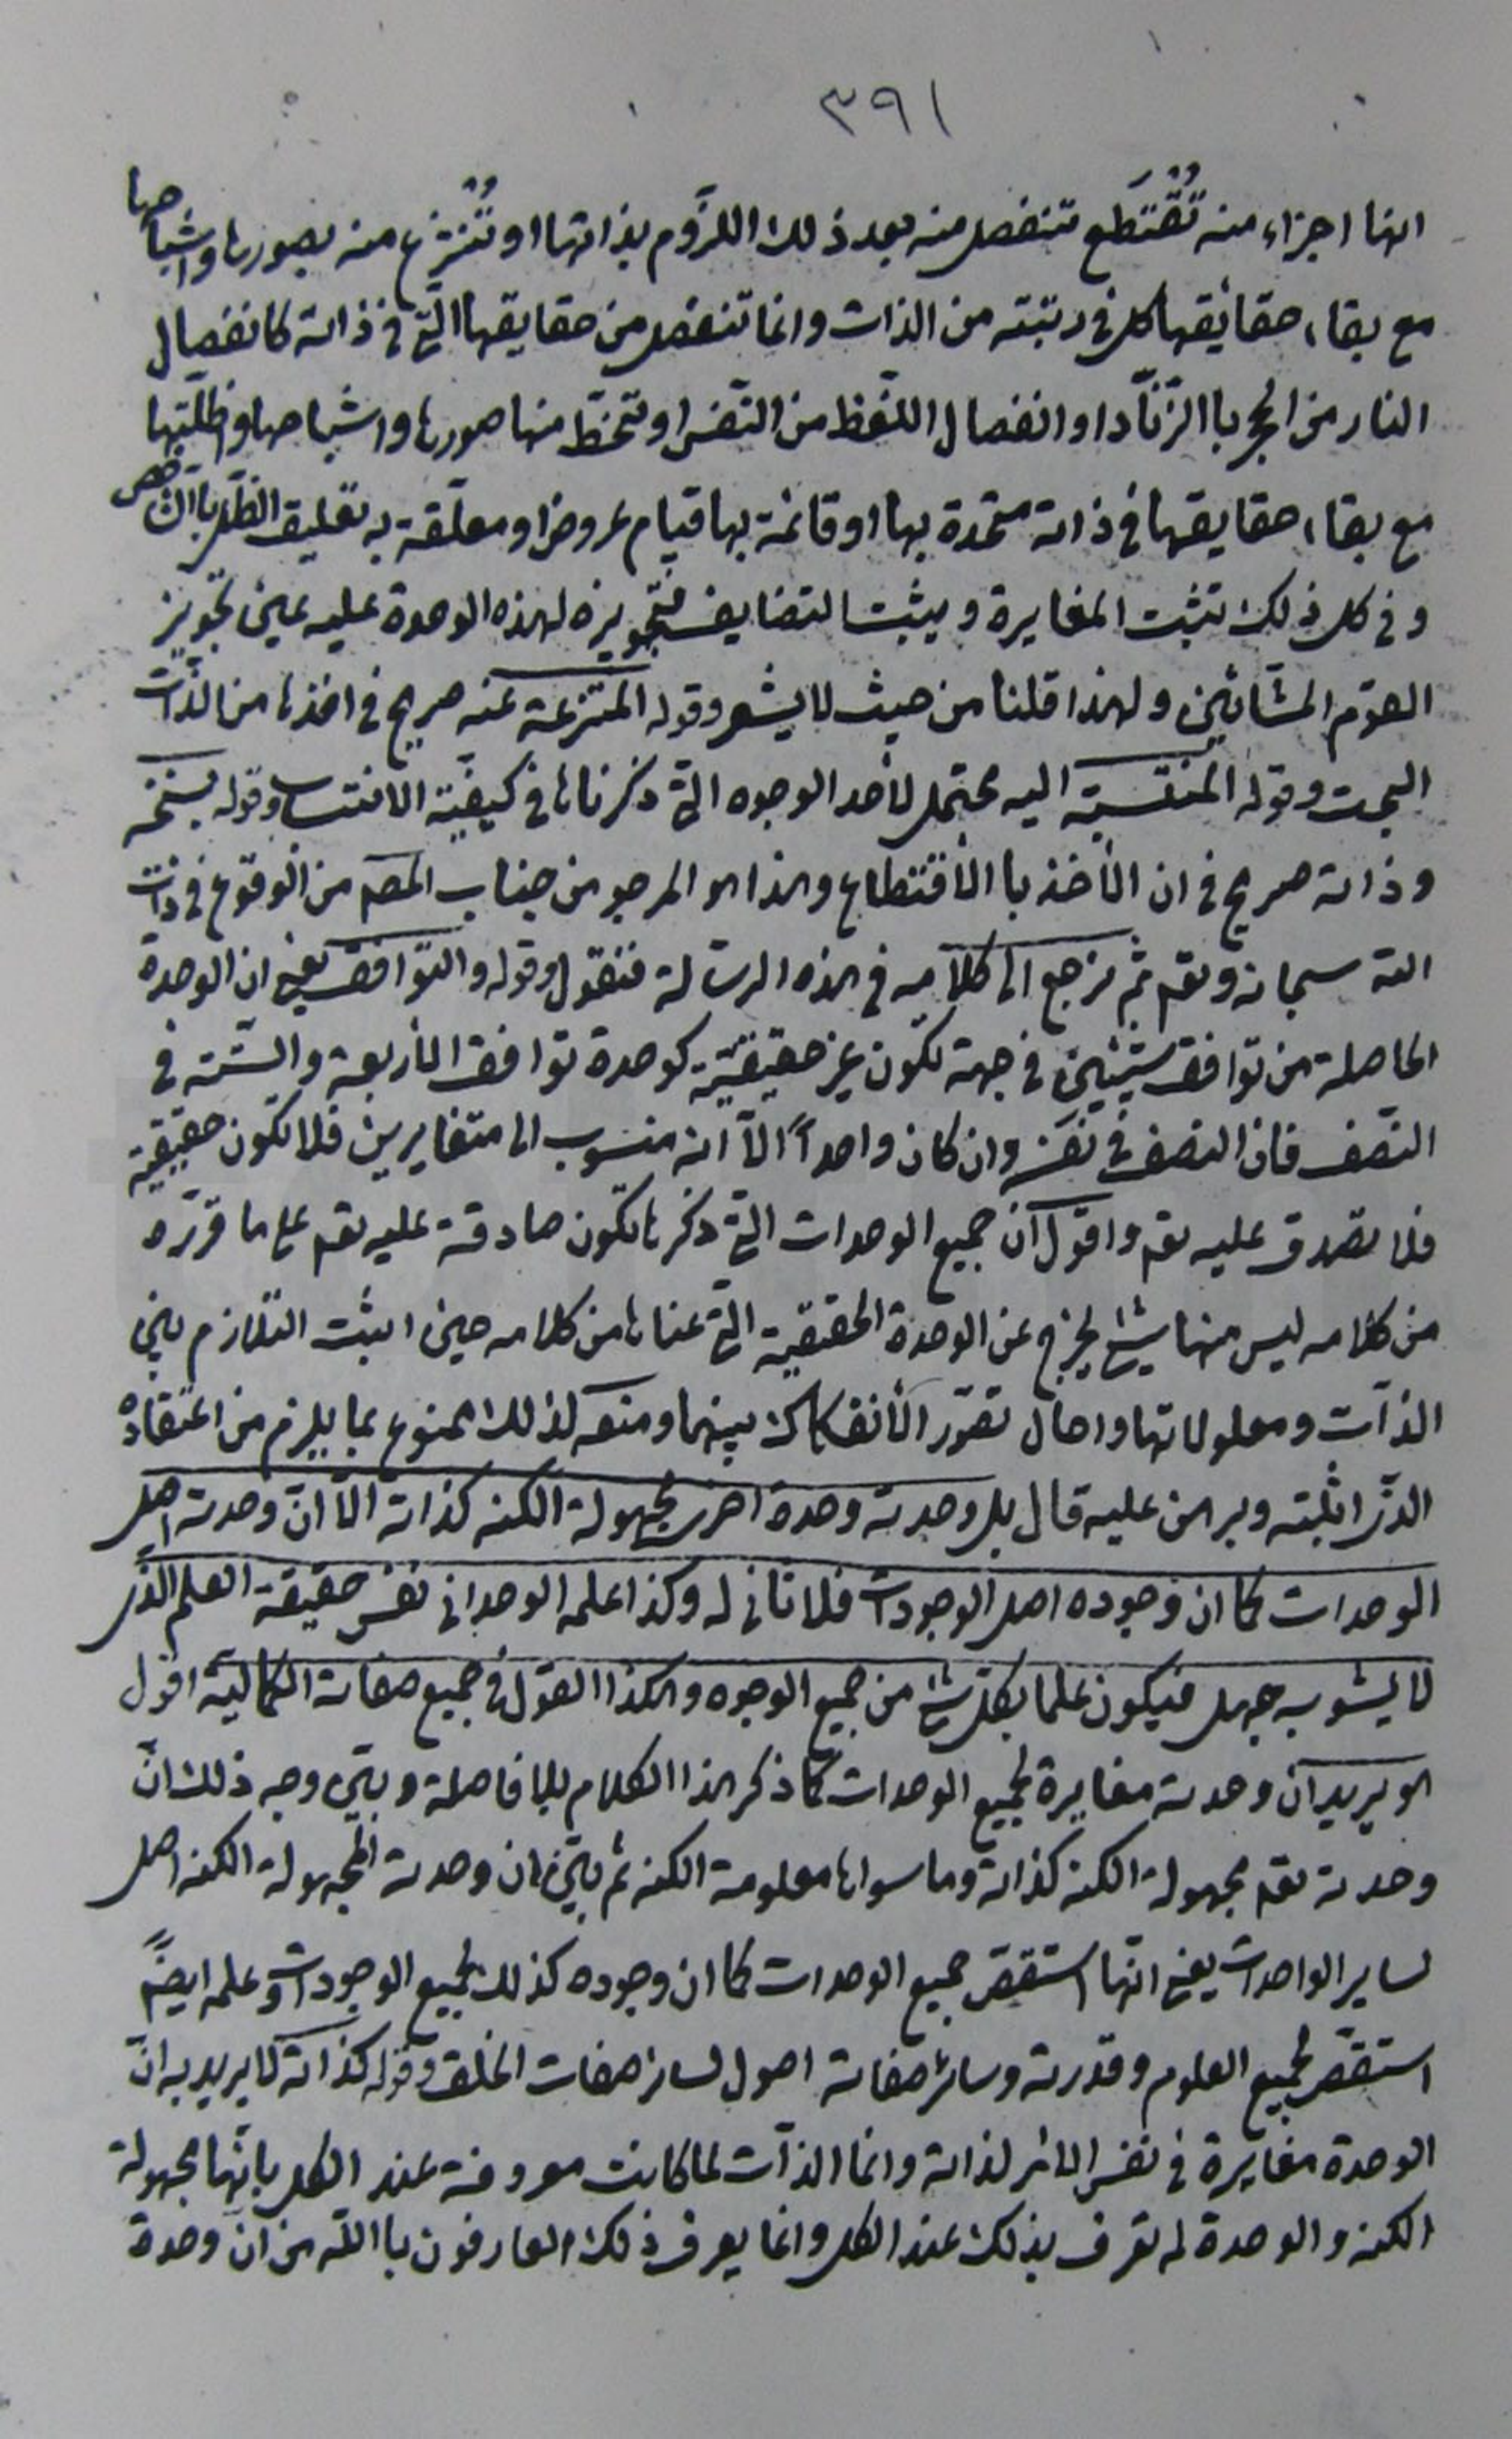 ٣٩١
انها اجزاء منه تُقْتَطَع تنفصل منه بعد ذلك اللزوم بذاتها او تُنْتزع منه بصورها واشباحها
مع بقاء حقائقها كل في رتبته من الذات وانما تنفصل من حقايقها التي في ذاته كانفصال
النار من الحجر باالزناد او انفصال اللفظ من النفس او تنحط منها صورها واشباحها واظلّتها
مع بقاء حقايقها في ذاته متحدة بها او قائمة بها قيام عروض او معلّقة به تعليق الظل باالشاخص
وفي كل ذلك تثبت المغايرة ويثبت التضايف فتجويزه لهذه الوحدة عليه عين تجويز
القوم المشائين ولهذا قلنا من حيث لا يشعر وقوله المنتزعة عنه صريح في اخذها من الذات
البحت وقوله المنتسبة اليه محتمل لأحد الوجوه التي ذكرناها في كيفية الانتساب وقوله بسنخه
وذاته صريح في ان الأخذ باالأقتطاع وهذا هو المرجو من جناب المصم من الوقوع في ذات
الله سبحانه وتعم ثم نرجع الى كلامه في هذه الرسالة فنقول وقوله والتوافق يعني ان الوحدة
الحاصلة من توافق شيئين في جهة تكون غير حقيقيّة كوحدة توافق الأربعة والستّة في
النصف فان النصف في نفسه وان كان واحداً الّا انه منسوب الى متغايرين فلا تكون حقيقية
فلا تصدق عليه تعم واقول ان جميع الوحدات التي ذكرها تكون صادقة عليه تعم على ما قرّره
من كلامه ليس منها شئ يخرج عن الوحدة الحقيقية التي عناها من كلامه حين اثبت التلازم بين
الذات ومعلولاتها واحال تصّور الأنفكاك بينهما ومنعه لذلك ممنوع بما يلزم من اعتقاده
الذى اثبته وبرهن عليه قال بل وحدته وحدة اخرى مجهولة الكنه كذاته الّا انّ وحدته اصل
الوحدات كما ان وجوده اصل الوجودات فلا ثاني له وكذا علمه الوحداني نفس حقيقة العلم الذى
لا يشوبه جهل فيكون علما بكل شئ من جميع الوجوه وهكذا القول في جميع صفاته الكمالية اقول
هو يريد ان وحدته مغايرة لجميع الوحدات كما ذكر هذا الكلام بلا فاصلة وبيّن وجه ذلك انّ
وحدته تعم مجهولة الكنه كذاته وما سواها معلومة الكنه ثم بيّن ان وحدته المجهولة الكنه اصل
لساير الواحدات يعني انّها استقص جميع الوحدات كما ان وجوده كذلك لجميع الوجودات وعلمه ايضًا
استقص لجميع العلوم وقدرته وسائر صفاته اصول لسائر صفات الخلق وقوله كذاته لا يريد به انّ
الوحدة مغايرة في نفس الامر لذاته وانما الذات لما كانت معروفة عند الكل بانّها مجهولة
الكنه والوحدة لم تعرف بذلك عند الكل وانما يعرف ذلك العارفون باالله من انّ وحدة